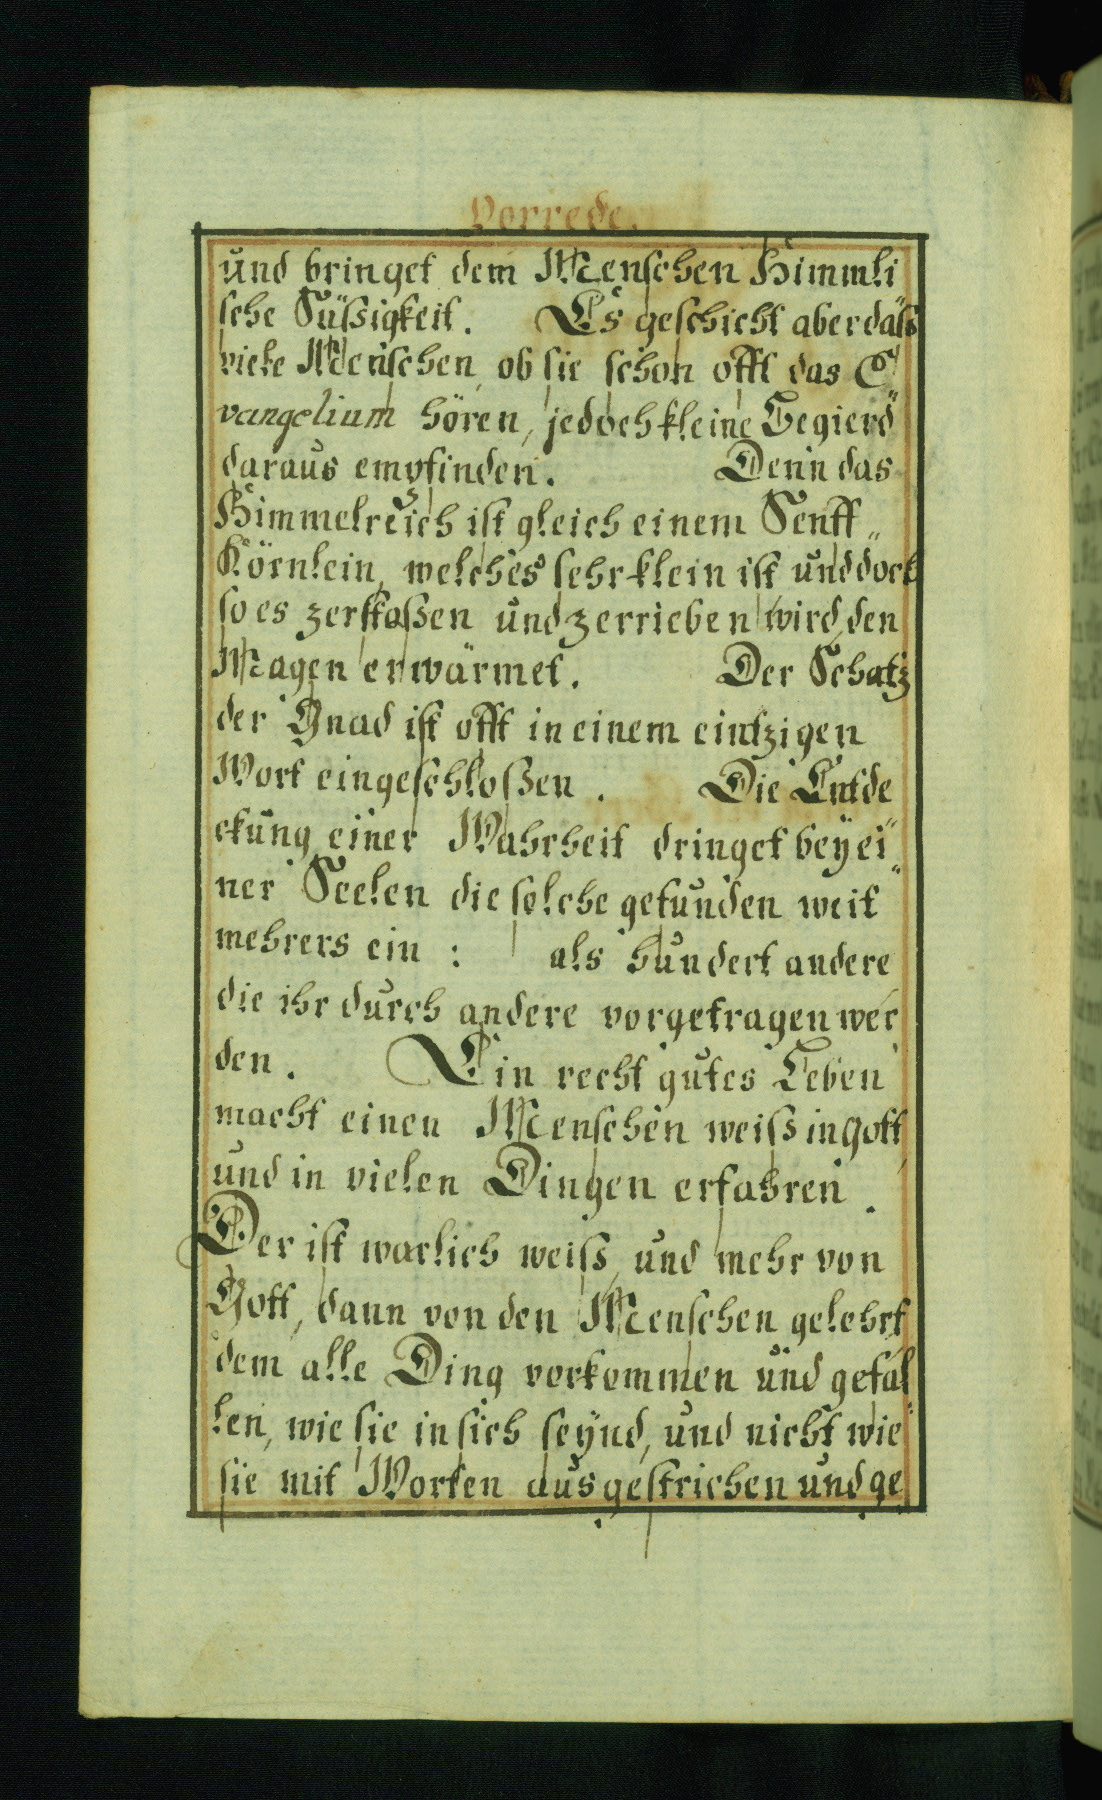 Vorrede.
und bringet dem Menschen Himmli
sche Süßigkeit. Es geschicht aber daß
viele Menschen, ob sie schon offt das E
vangelium hören, jedoch kleine Begierd
daraus empfinden. Denn das
Himmelreich ist gleich einem Senff„
Körnlein, welches sehr klein ist und doch
so es zerstoßen und zerrieben wird, den
Magen erwärmet. Der Schatz
der Gnad ist offt in einem eintzigen
Wort eingeschloßen. Die Entde
ckung einer Wahrheit dringet bey ei„
ner Seelen die solche gefunden weit
mehrers ein: als hundert andere
die ihr durch andere vorgetragen wer
den. Ein recht gutes Leben
macht einen Menschen weiß in Gott,
und in vielen Dingen erfahren.
Der ist warlich weiß, und mehr von
Gott, dann von den Menschen gelehrt,
dem alle Ding vorkommen und gefal
len, wie sie in sich seynd, und nicht wie
sie mit Worten ausgestrichen und ge